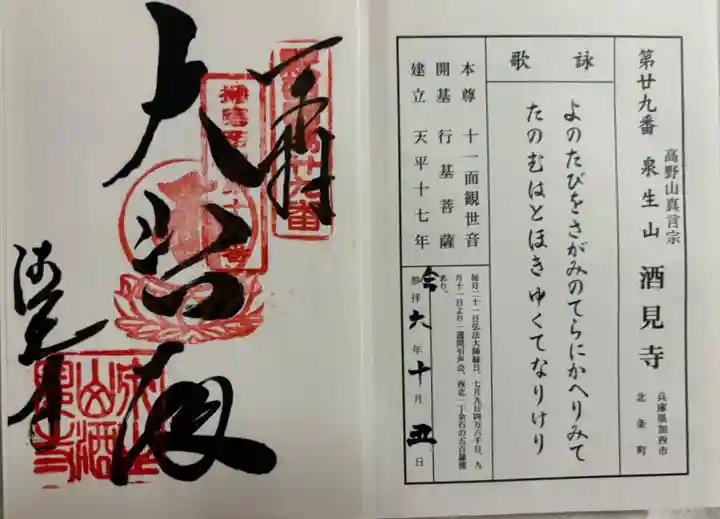 第廿九番 泉生山 酒見寺
高野山真言宗
兵庫県加西市
北条町
詠歌
よのたびをさがみのてらにかへりみて
たのむはとほきゆくてなりけり
本尊 十一面観世音
開基 行基菩薩
建立 天平十七年
毎月二十一日弘法大師縁日、七月九日四万六千日、九
月十一日より一週間引声会、西北一丁余石の五百羅漢
あり。
参拝 令六年十月五日
奉拝
大悲殿
酒見寺